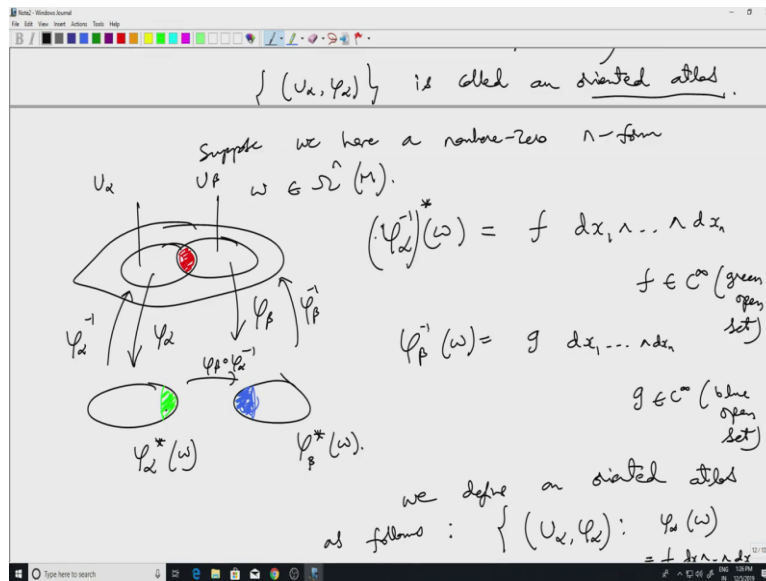 Note2 - Windows Journal
File Edit View Insert Actions Tools Help
{ (U_α, φ_α) } is called an oriented atlas.
Suppose we have a nowhere-zero n-form
ω ∈ Ω^n (M).
U_α U_β
(φ_α^{-1})^* (ω) = f dx_1 ∧ ... ∧ dx_n
f ∈ C^∞ (green open set)
φ_α^{-1} φ_α φ_β φ_β^{-1}
φ_β^{-1} (ω) = g dx_1 ... ∧ dx_n
φ_β ∘ φ_α^{-1}
g ∈ C^∞ (blue open set)
φ_α^* (ω) φ_β^* (ω).
we define an oriented atlas
as follows : { (U_α, φ_α) : φ_α (ω)
= f dx ∧ .. ∧ dx
12/13
Type here to search
ENG 1:26 PM
IN 12/5/2019